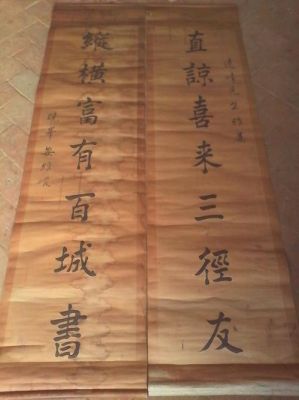 直諒喜来三徑友
縱横富有百城書